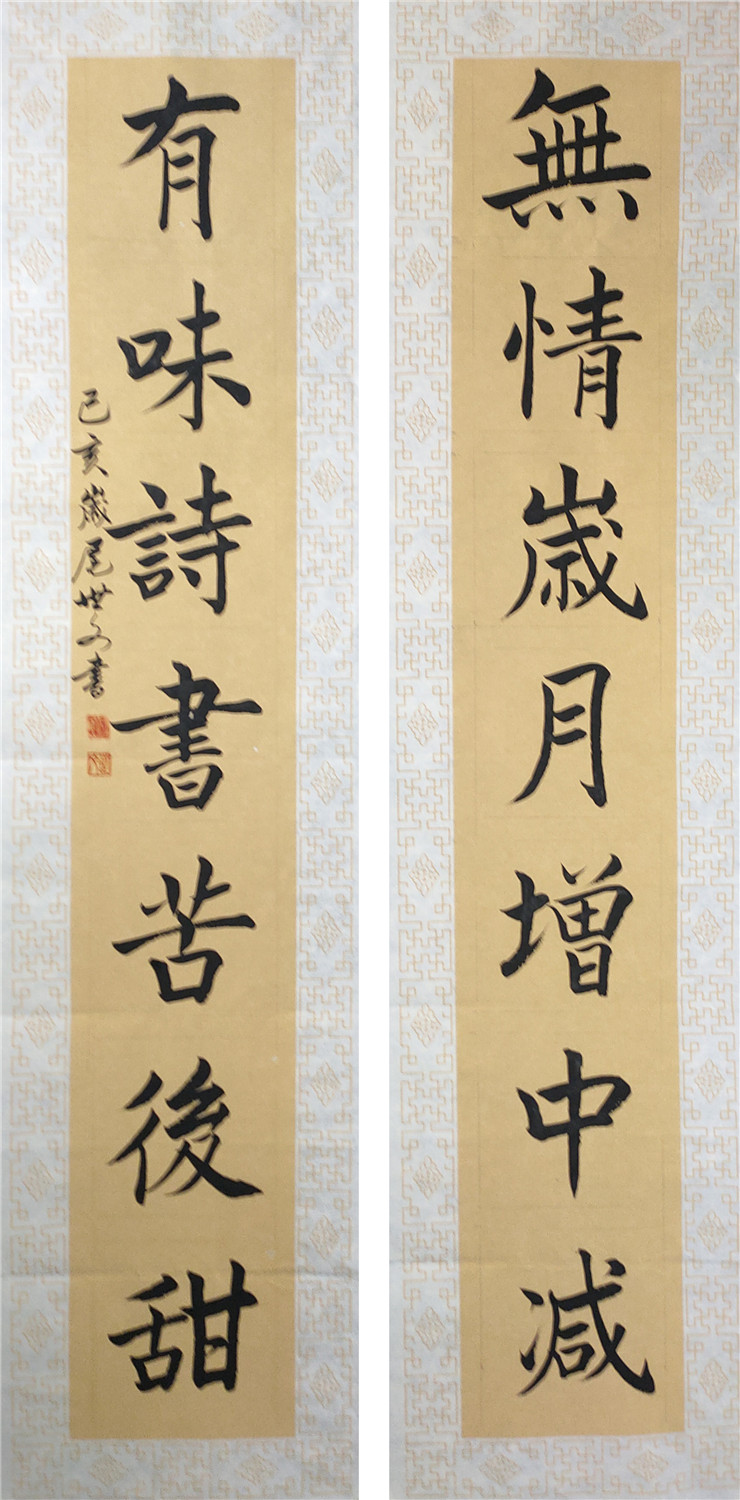 無情歲月增中减
有味詩書苦後甜
己亥歲尾世文書